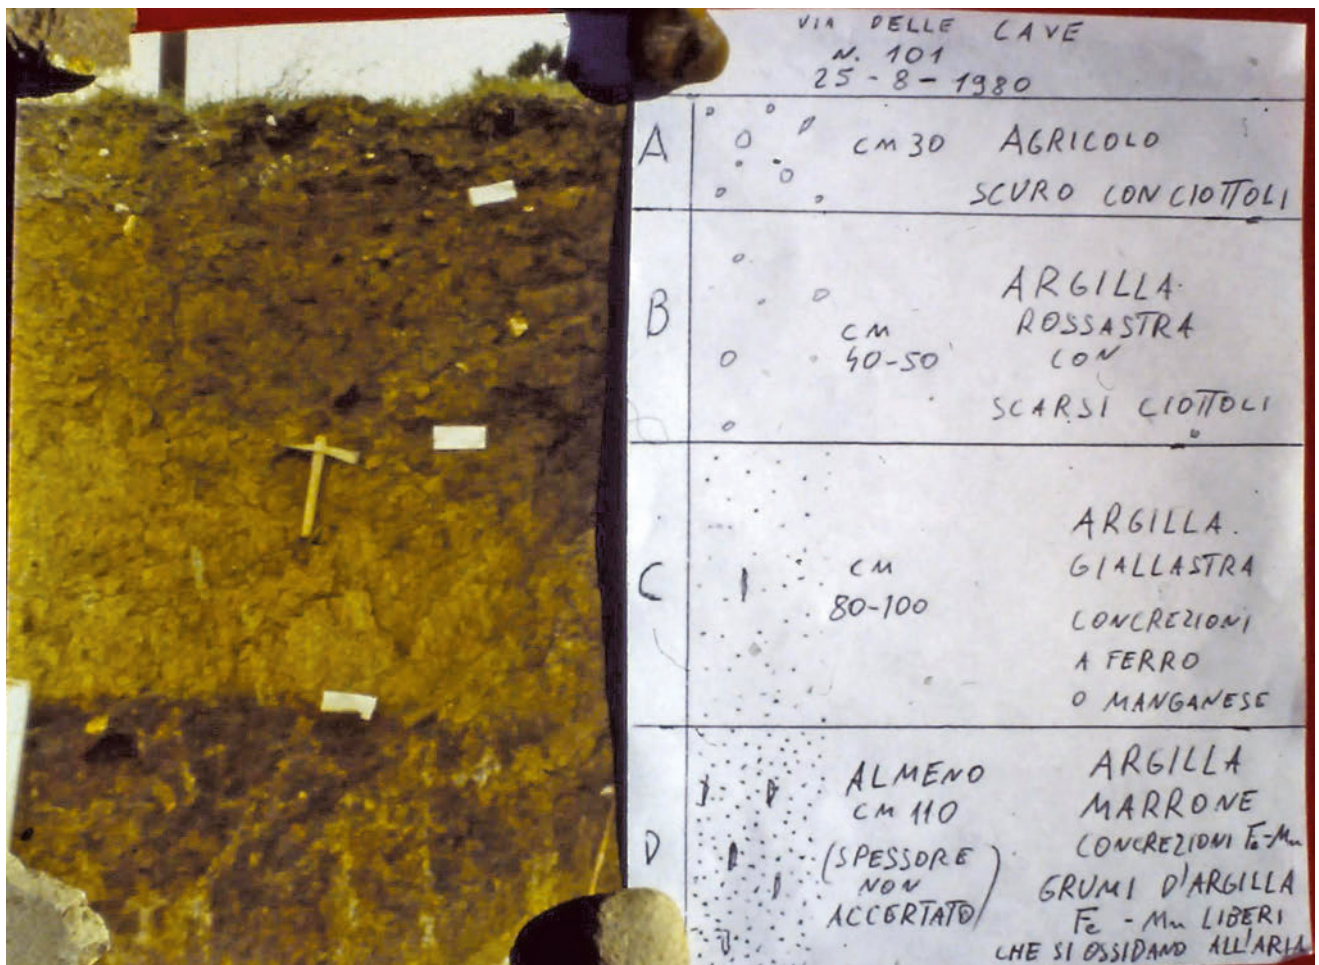 VIA DELLE CAVE
N. 101
25-8-1980
A CM 30 AGRICOLO
SCURO CON CIOTTOLI
B
ARGILLA
ROSSASTRA
CM
CON
40-50
SCARSI CIOTTOLI
C
ARGILLA
GIALLASTRA
CM
80-100
CONCREZIONI
A FERRO
O MANGANESE
D
ALMENO
CM 110
(SPESSORE
NON
ACCERTATO)
ARGILLA
MARRONE
CONCREZIONI Fe-Mn
GRUMI D'ARGILLA
Fe - Mn LIBERI
CHE SI OSSIDANO ALL'ARIA